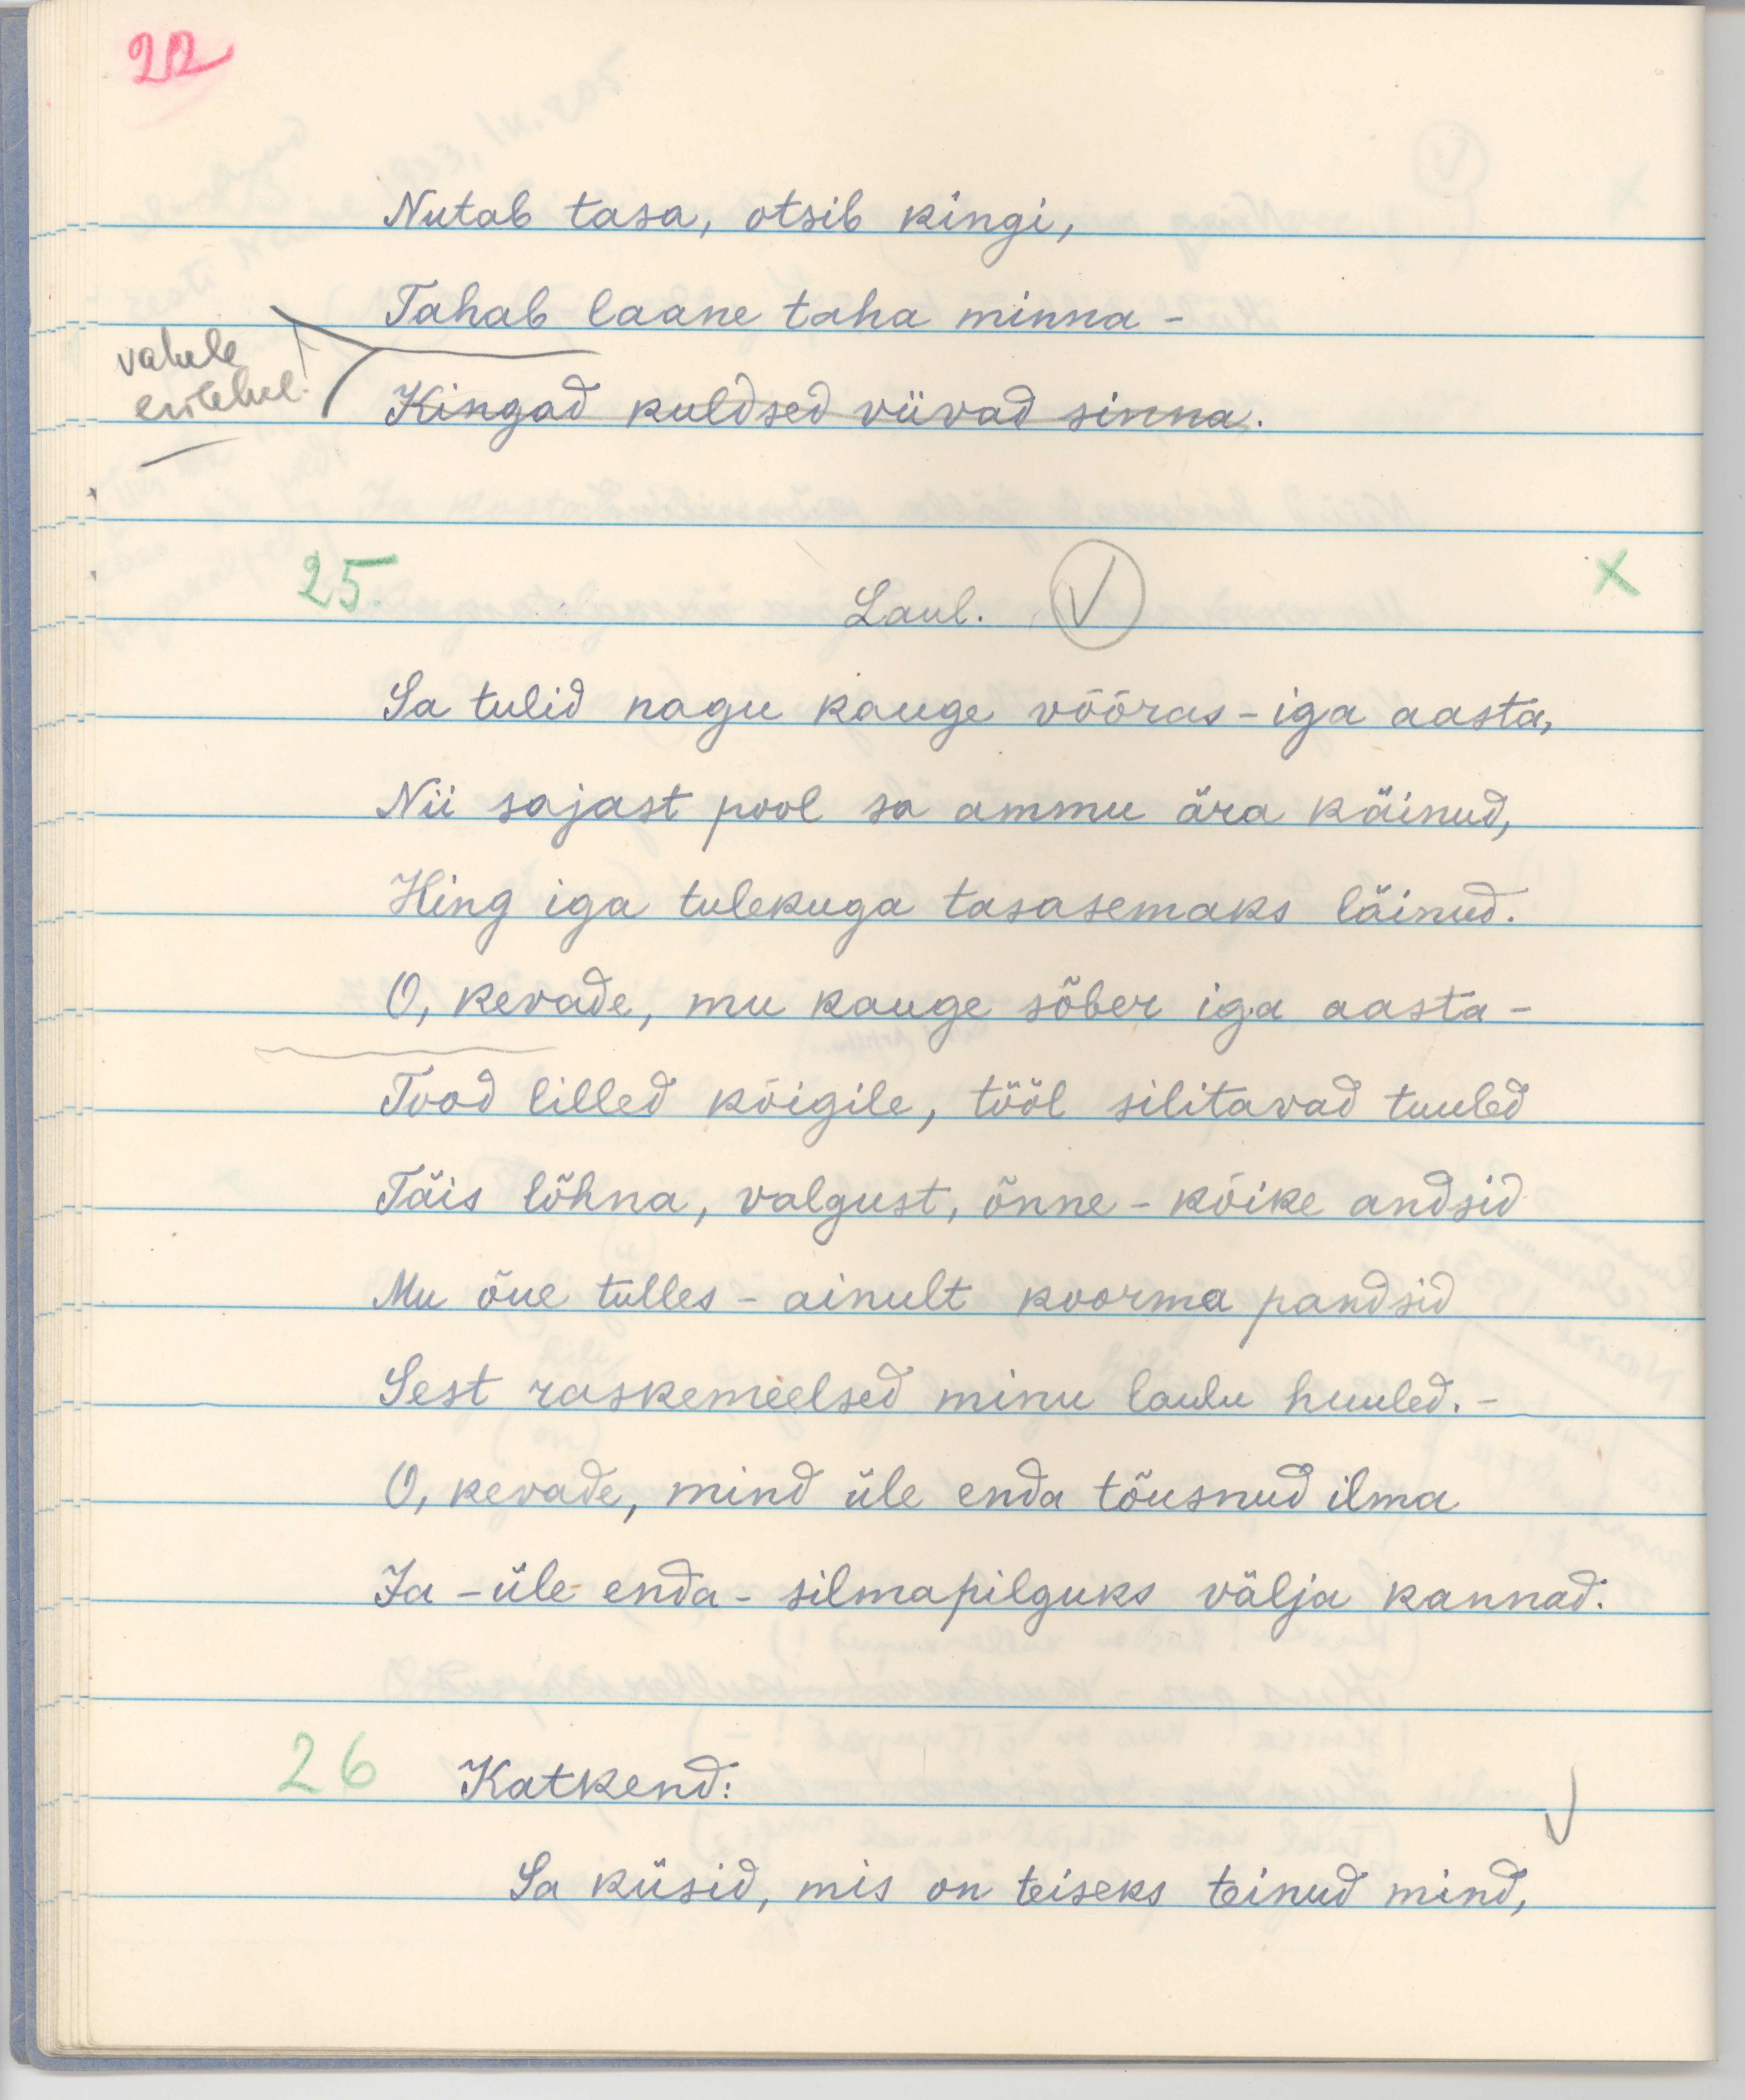 22
Nutab tasa, otsib kingi,
Tahab laane taha minna -
vahele
Kingad kuldsed viivad sinna.
25.
Laul.
Sa tulid nagu kauge võõras - iga aasta,
Nii sajast pool sa ammu ära käinud,
Hing iga tulekuga tasasemaks läinud.
O, kevade, mu kauge sõber iga aasta -
Tood lilled kõigile, tööl silitavad tuuled
Täis lõhna, valgust, õnne - kõike andsid
Mu õue tulles - ainult koorma pandsid
Sest raskemeelsed minu laulu huuled. -
O, kevade, mind üle enda tõusnud ilma
Ja - üle enda - silmapilguks välja kannad.
26
Katkend:
Sa küsid, mis on teiseks teinud mind,